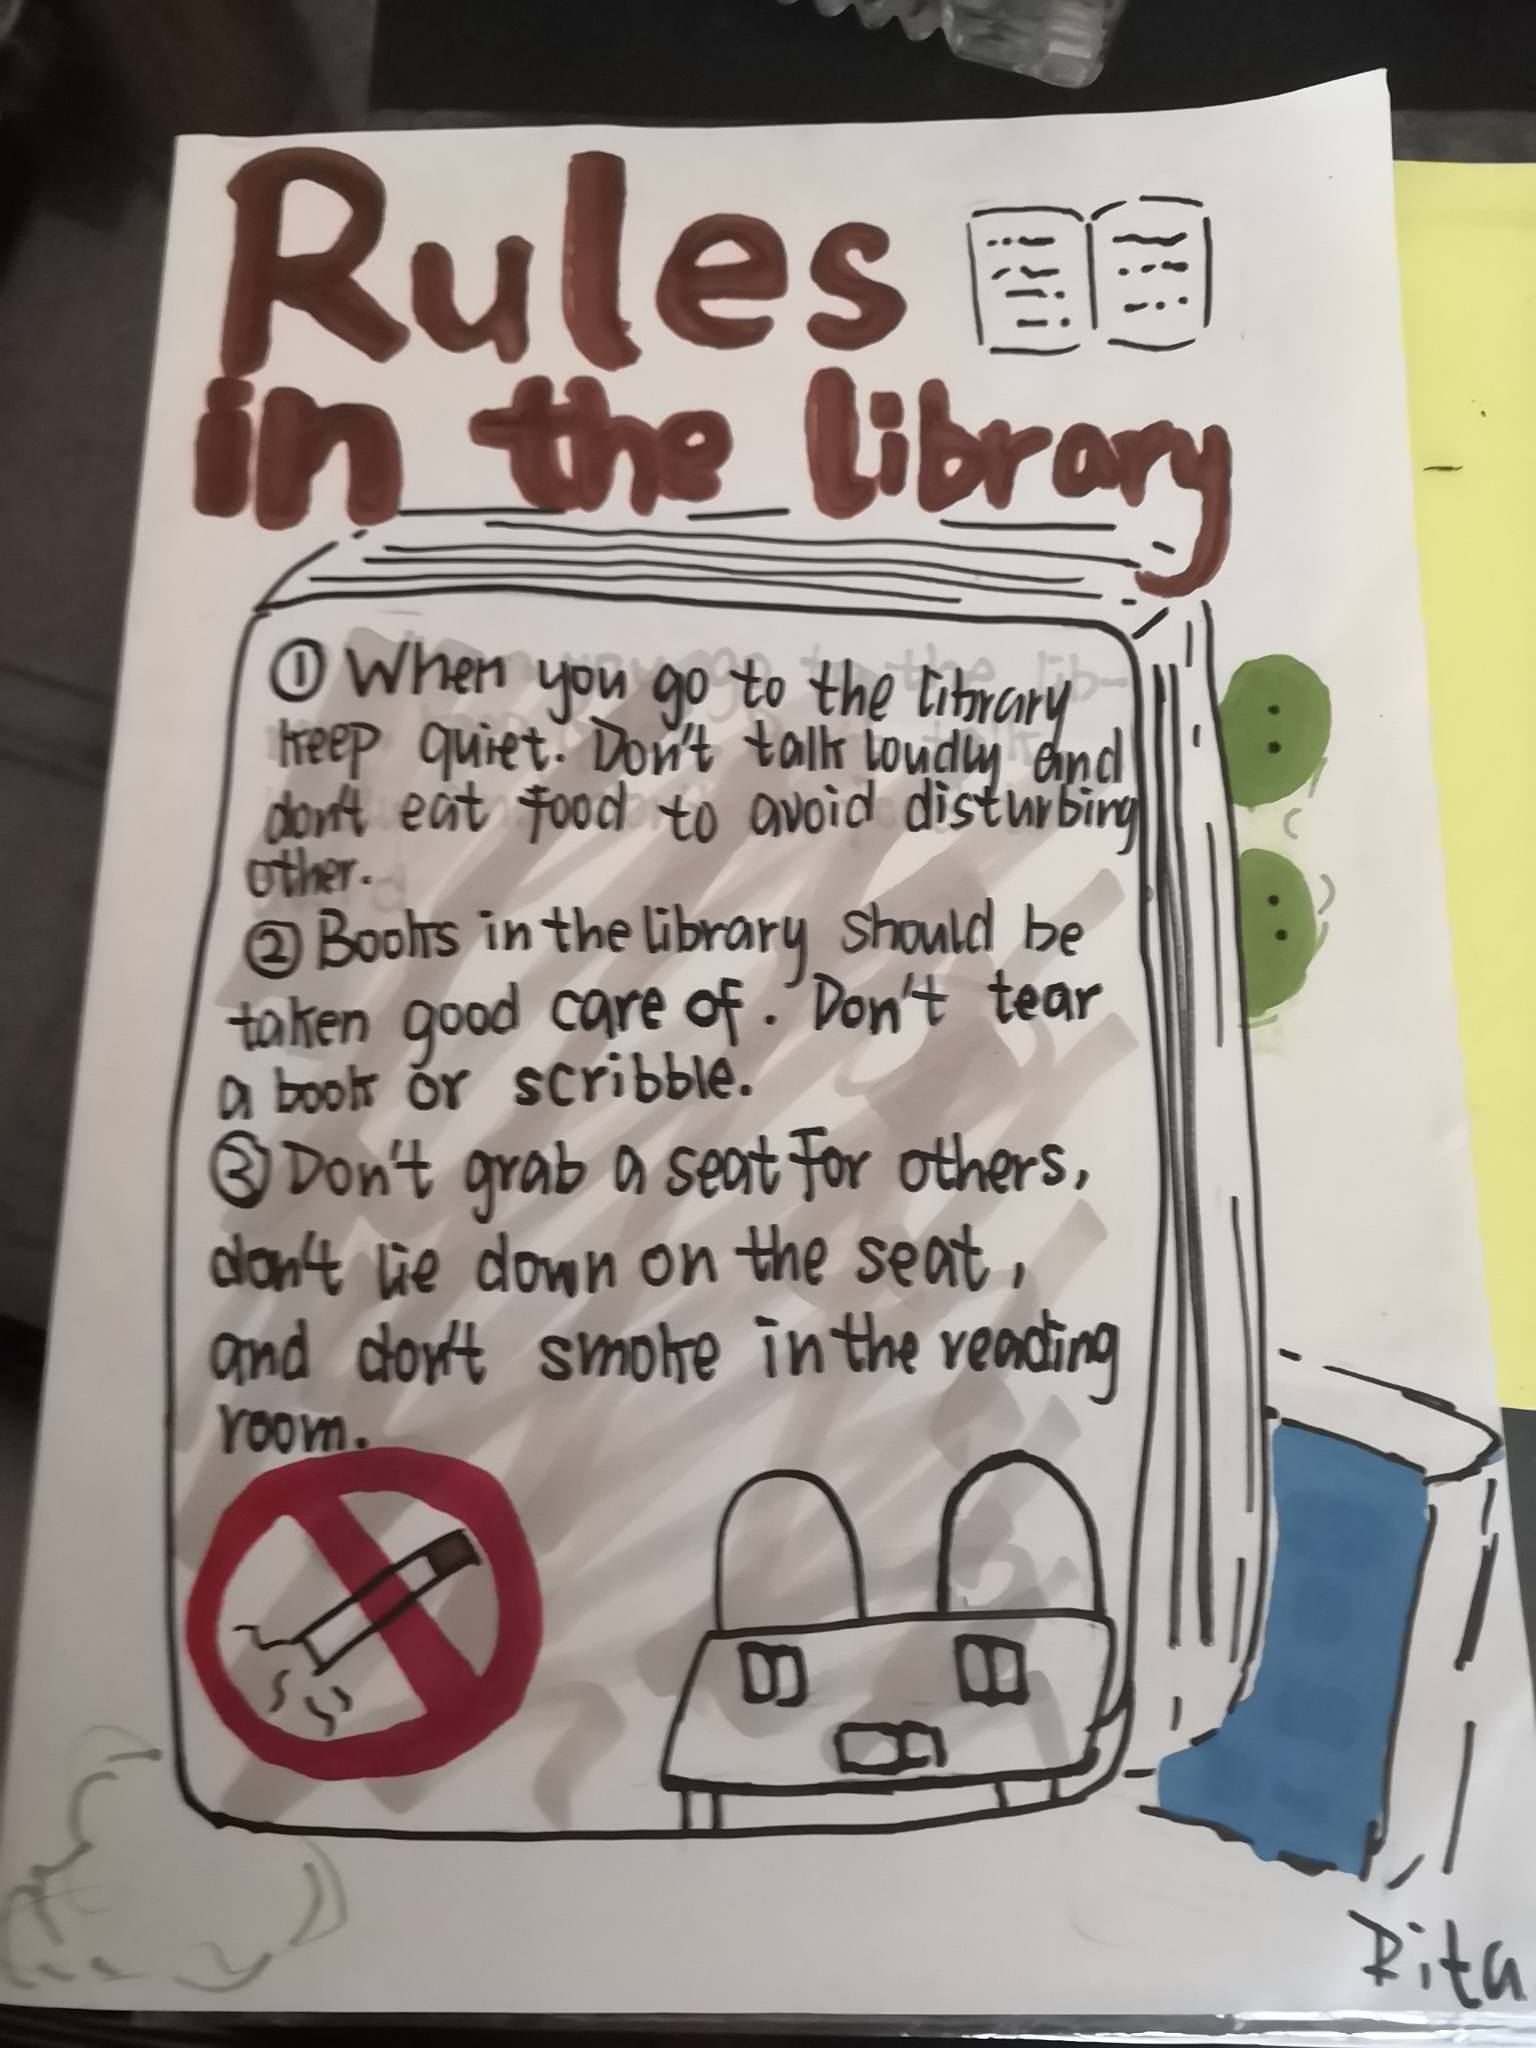 Rules
in the library
① When you go to the library
keep quiet. Don't talk loudly and
don't eat food to avoid disturbing
other.
② Books in the library should be
taken good care of. Don't tear
a book or scribble.
③ Don't grab a seat for others,
don't lie down on the seat,
and don't smoke in the reading
room.
Rita